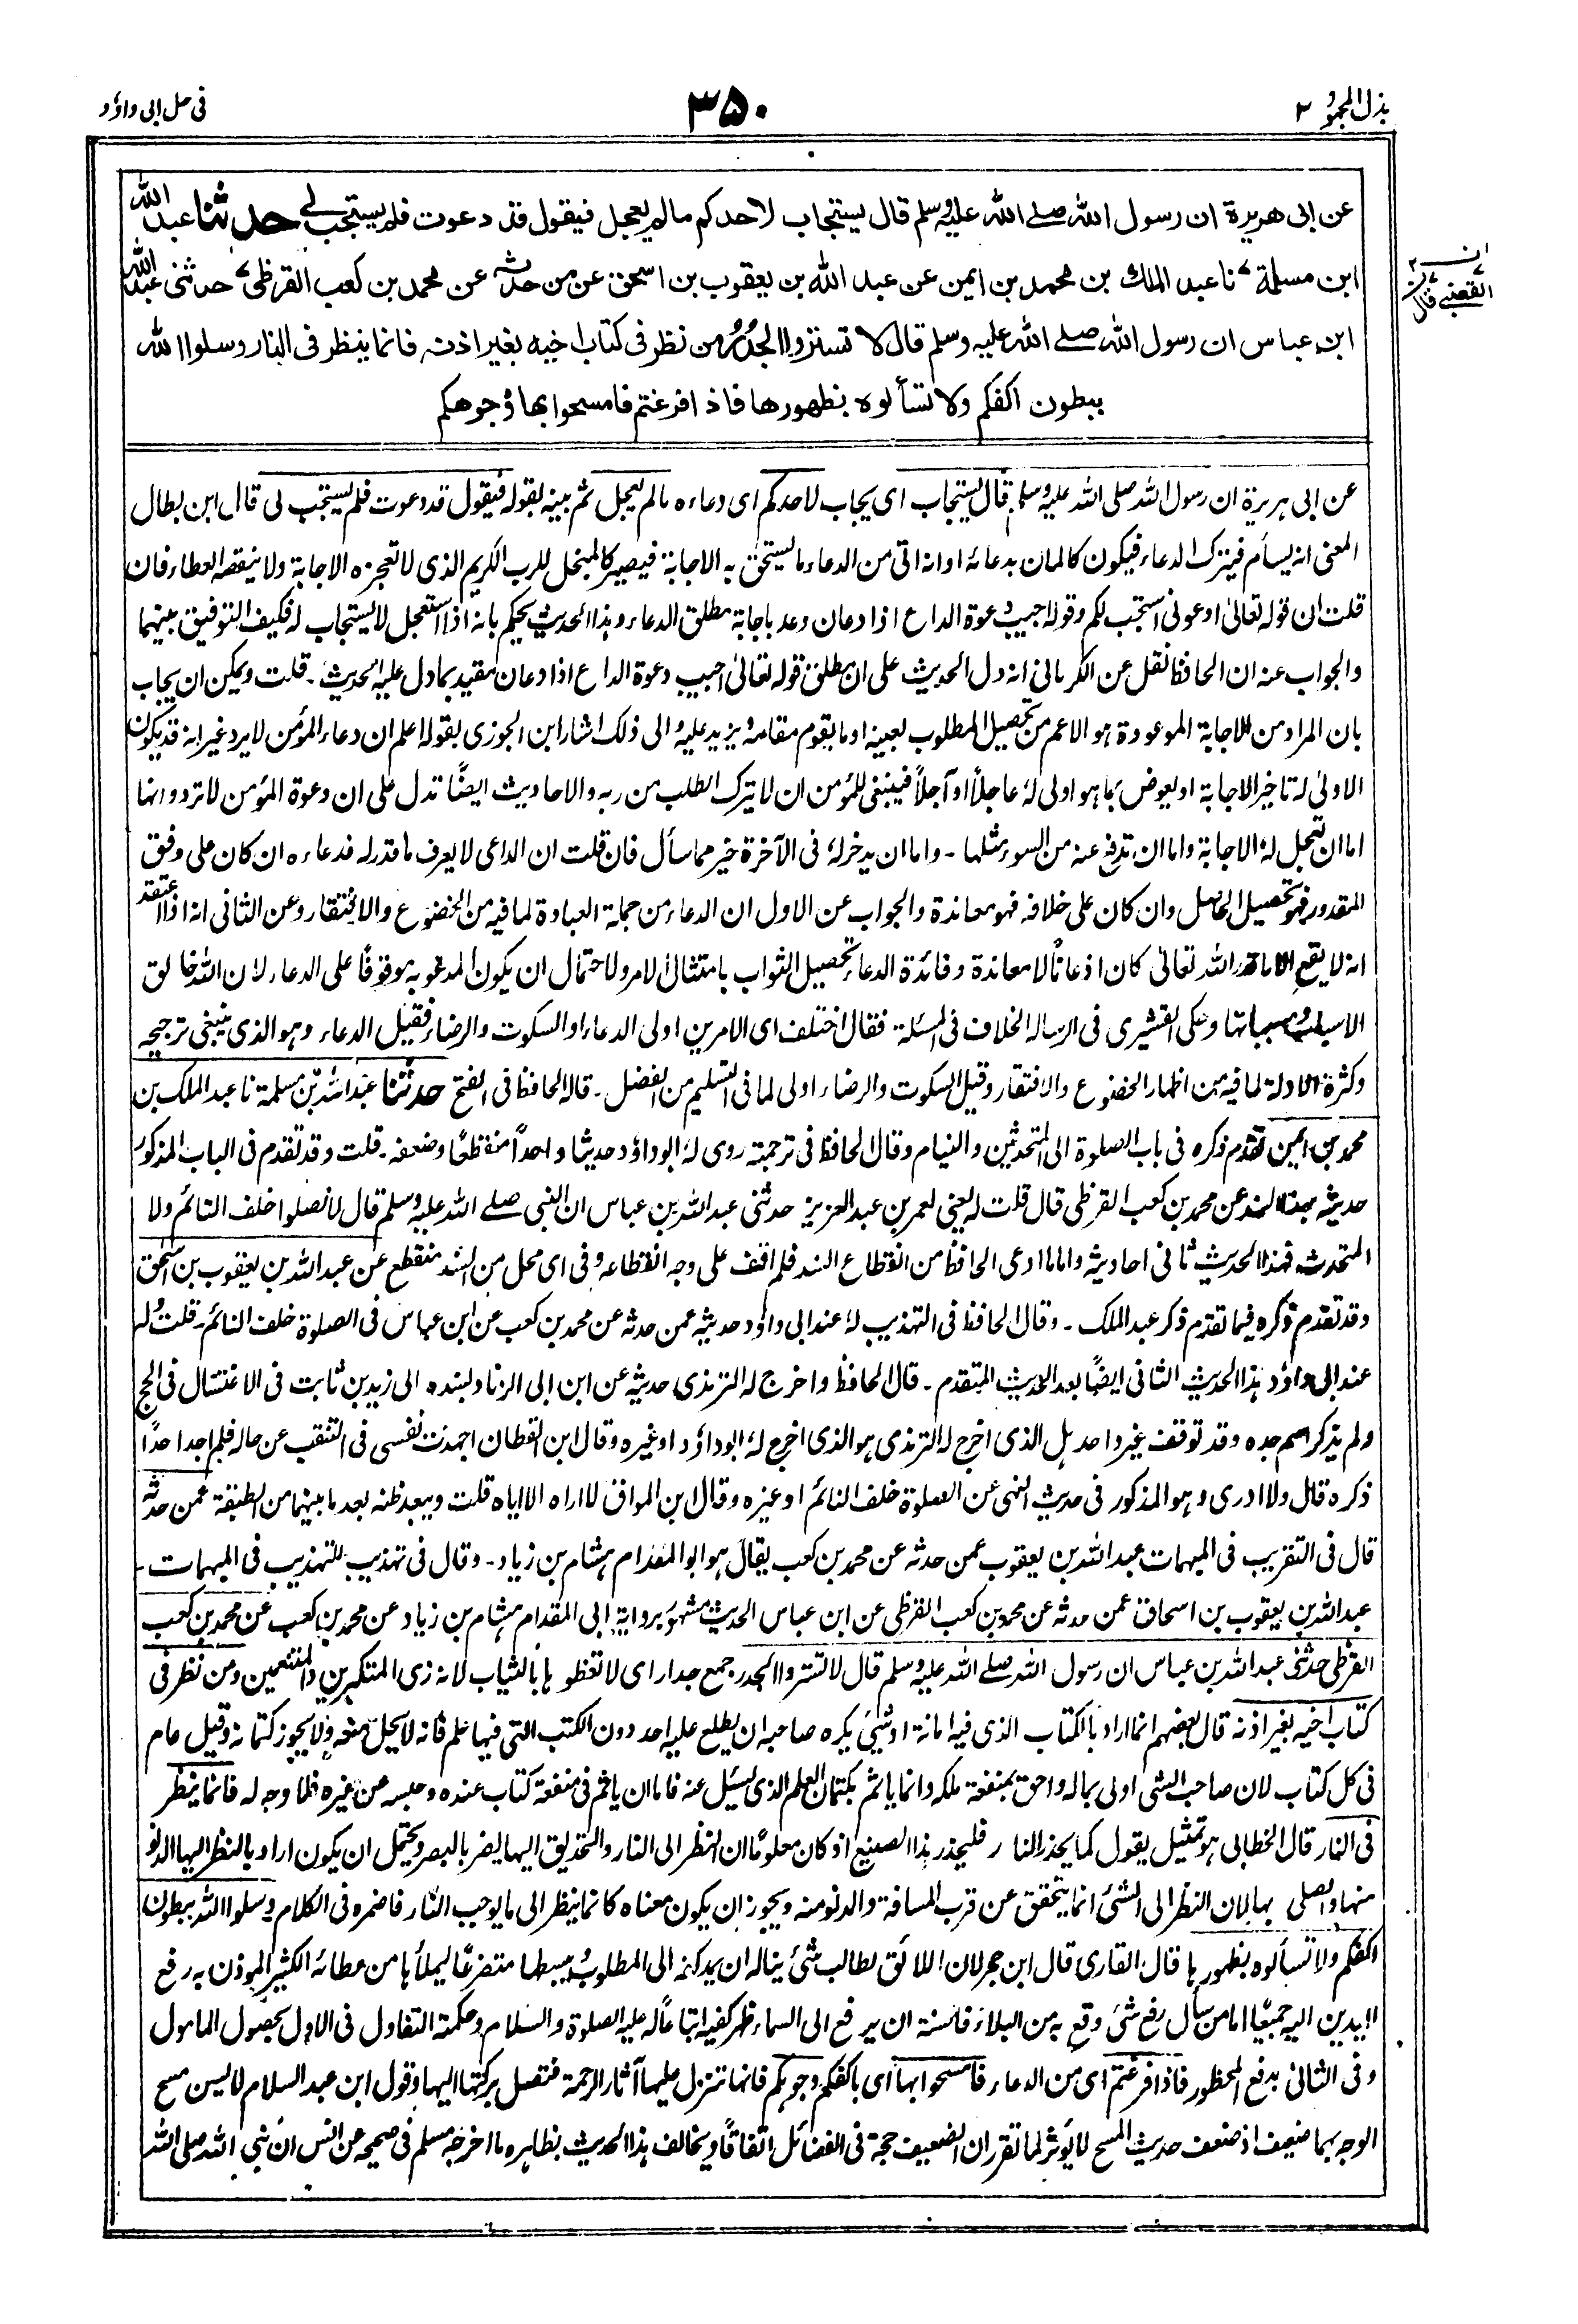 بذل المجهود ٢
٣٥٠
فى حل ابى داؤد
عن ابى هريرة ان رسول الله صلے الله عليه وسلم قال يستجاب لاحدكم مالم يعجل فيقول قد دعوت فلم يستجب لے حدثنا عبد الله
ابن مسلمة نا عبد الملك بن محمد بن ايمن عن عبد الله بن يعقوب بن اسحق عن من حدثه عن محمد بن كعب القرظى حدثنى عبد الله
القعنبے قال
ابن عباس ان رسول الله صلے الله عليه وسلم قال لا تستروا الجدُرُ من نظر فى كتاب اخيه بغير اذنه فانما ينظر فى النار وسلوا الله
ببطون اكفكم ولا تسألوه بظهورها فاذا فرغتم فامسحوا بها وُجوهكم
عن ابى هريرة ان رسول الله صلى الله عليه وسلم قال يستجاب اى يجاب لاحدكم اى دعاءه مالم يعجل ثم بينه بقوله فيقول قد دعوت فلم يستجب لى قال ابن بطال
المعنى انه يسأم فيترك الدعاء فيكون كالمان بدعائه او انه اتى من الدعاء ما يستحق به الاجابة فيصير كالمبخل للرب الكريم الذى لا تعجزه الاجابة ولا ينقصه العطاء فان
قلت ان قوله تعالىٰ ادعونى استجب لكم وقوله اجيب دعوة الداع اذا دعان وعد باجابة مطلق الدعاء وهذا الحديث يحكم بانه اذا استعجل لا يستجاب له فكيف التوفيق بينهما
والجواب عنه ان الحافظ نقل عن الكرمانى انه دل الحديث على ان مطلق قوله تعالىٰ اجيب دعوة الداع اذا دعان مقيد بما دل عليه الحديث ـ قلت ويمكن ان يجاب
بان المراد من الاجابة الموعودة هو الاعم من تحصيل المطلوب بعينه او ما يقوم مقامه ويزيد عليه والى ذلك اشار ابن الجوزى بقوله اعلم ان دعاء المؤمن لا يرد غير انه قد يكون
الاولىٰ له تاخير الاجابة او يعوض بما هو اولى له عاجلًا او آجلًا فينبغى للمؤمن ان لا يترك الطلب من ربه والاحاديث ايضًا تدل على ان دعوة المؤمن لا ترد وانها
اما ان تعجل له الاجابة واما ان تدفع عنه من السوء مثلها ـ واما ان يدخر له فى الآخرة خير مما سأل فان قلت ان الداعى لا يعرف ما قدر له فدعاءه ان كان على وفق
المقدور فهو تحصيل الحاصل وان كان على خلافه فهو معاندة والجواب عن الاول ان الدعاء من جملة العبادة لما فيه من الخضوع والافتقار وعن الثانى انه اذا اعتقد
انه لا يقع الا ما قدر الله تعالى كان اذعانًا لا معاندة وفائدة الدعاء تحصيل الثواب بامتثال الامر ولاحتمال ان يكون المدعو به موقوفًا على الدعاء لان الله خالق
الاسباب ومسبباتها وحكى القشيرى فى الرسالة الخلاف فى المسئلة فقال اختلف اى الامرين اولى الدعاء او السكوت والرضاء فقيل الدعاء وهو الذى ينبغى ترجيحه
وكثرة الادلة لما فيه من اظهار الخضوع والافتقار وقيل السكوت والرضاء اولى لما فى التسليم من الفضل ـ قاله الحافظ فى الفتح حدثنا عبد الله بن مسلمة نا عبد الملك بن
محمد بن ايمن تقدم ذكره فى باب الصلوة الى المتحدثين والنيام وقال الحافظ فى ترجمته روى له ابوداؤد حديثا واحداً منقطعًا وضعفه ـ قلت وقد تقدم فى الباب المذكور
حديثه بهذا السند عن محمد بن كعب القرظى قال قلت له يعنى لعمر بن عبد العزيز حدثنى عبد الله بن عباس ان النبى صلے الله عليه وسلم قال لا تصلوا خلف النائم ولا
المتحدث فهذا الحديث ثانى احاديثه واما ما ادعى الحافظ من انقطاع السند فلم اقف على وجه انقطاعه وفى اى محل من السند منقطع عن عبد الله بن يعقوب بن اسحق
وقد تقدم ذكره فيما تقدم ذكر عبد الملك ـ وقال الحافظ فى التهذيب له عند ابى داؤد حديثه عمن حدثه عن محمد بن كعب عن ابن عباس فى الصلوة خلف النائم ـ قلت وله
عند ابى داؤد هذا الحديث الثانى ايضًا بعد الحديث المتقدم ـ قال الحافظ واخرج له الترمذى حديثه عن ابن ابى الزناد بسنده الى زيد بن ثابت فى الاغتسال فى الحج
ولم يذكر اسم جده وقد توقف غير واحد هل الذى اخرج له الترمذى هو الذى اخرج له ابوداؤد او غيره وقال ابن القطان اجهدت نفسى فى التنقب عن حاله فلم اجد احدًا
ذكره قال ولا ادرى وهو المذكور فى حديث النهى عن الصلوة خلف النائم او غيره وقال ابن المواق لا اراه الا اياه قلت ويبعد ظنه بعد ما بينهما من الطبقة عمن حدثه
قال فى التقريب فى المبهمات عبد الله بن يعقوب عمن حدثه عن محمد بن كعب يقال هو ابو المقدام هشام بن زياد ـ وقال فى تهذيب التهذيب فى المبهمات ـ
عبد الله بن يعقوب بن اسحاق عمن حدثه عن محمد بن كعب القرظى عن ابن عباس الحديث مشهور برواية ابى المقدام هشام بن زياد عن محمد بن كعب عن محمد بن كعب
القرظى حدثنى عبد الله بن عباس ان رسول الله صلے الله عليه وسلم قال لا تستروا الجدر جمع جدار اى لا تغطوها بالثياب لانه زى المتكبرين والمتنعمين ومن نظر فى
كتاب اخيه بغير اذنه قال بعضهم انما اراد بالكتاب الذى فيه امانة او شئ يكره صاحبه ان يطلع عليه احد دون الكتب التى فيها علم فانه لا يحل منعه ولا يجوز كتمانه وقيل عام
فى كل كتاب لان صاحب الشئ اولى بماله واحق بمنفعة ملكه وانما ياثم بكتمان العلم الذى يسئل عنه فاما ان ياثم فى منفعة كتاب عنده وحبسه من غيره فلا وجه له فانما ينظر
فى النار قال الخطابى هو تمثيل يقول كما يحذر النار فليحذر هذا الصنيع اذ كان معلومًا ان النظر الى النار والتحديق اليها يضر بالبصر ويحتمل ان يكون اراد بالنظر اليها الدنو
منها والصلى بها لان النظر الى الشئ انما يتحقق عن قرب المسافة والدنو منه ويجوز ان يكون معناه كانما ينظر الى ما يوجب النار فاضمره فى الكلام وسلوا الله ببطون
اكفكم ولا تسألوه بظهورها قال القارى قال ابن حجر لان اللائق لطالب شئ يناله ان يمد كفه الى المطلوب ويبسطها متضرعًا ليملأها من عطائه الكثير الموذن به رفع
اليدين اليه جميعًا اما من سأل رفع شئ وقع به من البلاء فالسنة ان يرفع الى السماء ظهر كفيه اتباعًا له عليه الصلوة والسلام وحكمة التفاول فى الاول بحصول المامول
وفى الثانى بدفع المحظور فاذا فرغتم اى من الدعاء فامسحوا بها اى باكفكم وجوهكم فانها تنزل عليها آثار الرحمة فتصل بركتها اليها وقول ابن عبد السلام لا يسن مسح
الوجه بهما ضعيف اذ ضعف حديث المسح لا يؤثر لما تقرر ان الضعيف حجة فى الفضائل اتفاقًا ويخالف هذا الحديث بظاهره ما اخرجه مسلم فى صحيحه عن انس ان نبى الله صلى الله